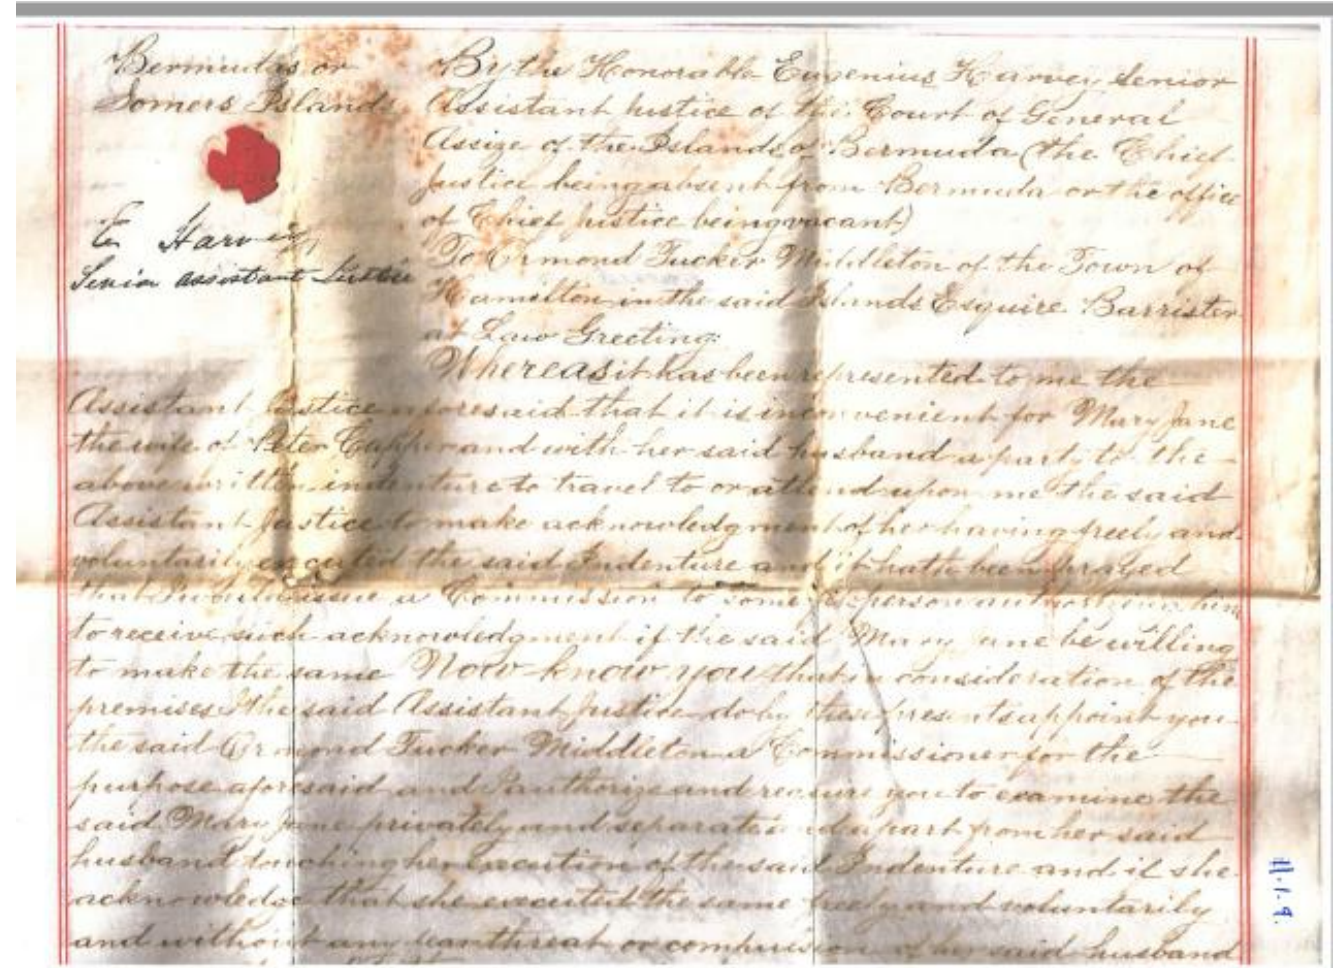 Bermudas or
Somers Islands
E. Harvey
Senior assistant Justice
By the Honorable Eugenius Harvey Senior
Assistant Justice of the Court of General
Assize of the Islands of Bermuda (the Chief
Justice being absent from Bermuda or the office
of Chief Justice being vacant)
To Ormond Tucker Middleton of the Town of
Hamilton in the said Islands Esquire Barrister
at Law Greeting:
Whereas it has been represented to me the
Assistant Justice aforesaid that it is inconvenient for Mary Jane
the wife of Peter and with her said husband a party to the
above written indenture to travel to or attend upon me the said
Assistant Justice to make acknowledgment of her having freely and
voluntarily executed the said Indenture and it hath been prayed
that I would issue a Commission to some person authorizing him
to receive such acknowledgment if the said Mary Jane be willing
to make the same Now know you that in consideration of the
premises I the said Assistant Justice do by these presents appoint you
the said Ormond Tucker Middleton a Commissioner for the
purpose aforesaid and I authorize and require you to examine the
said Mary Jane privately and separate and apart from her said
husband touching her Execution of the said Indenture and if she
acknowledge that she executed the same freely and voluntarily
and without any fear threat or compulsion of her said husband